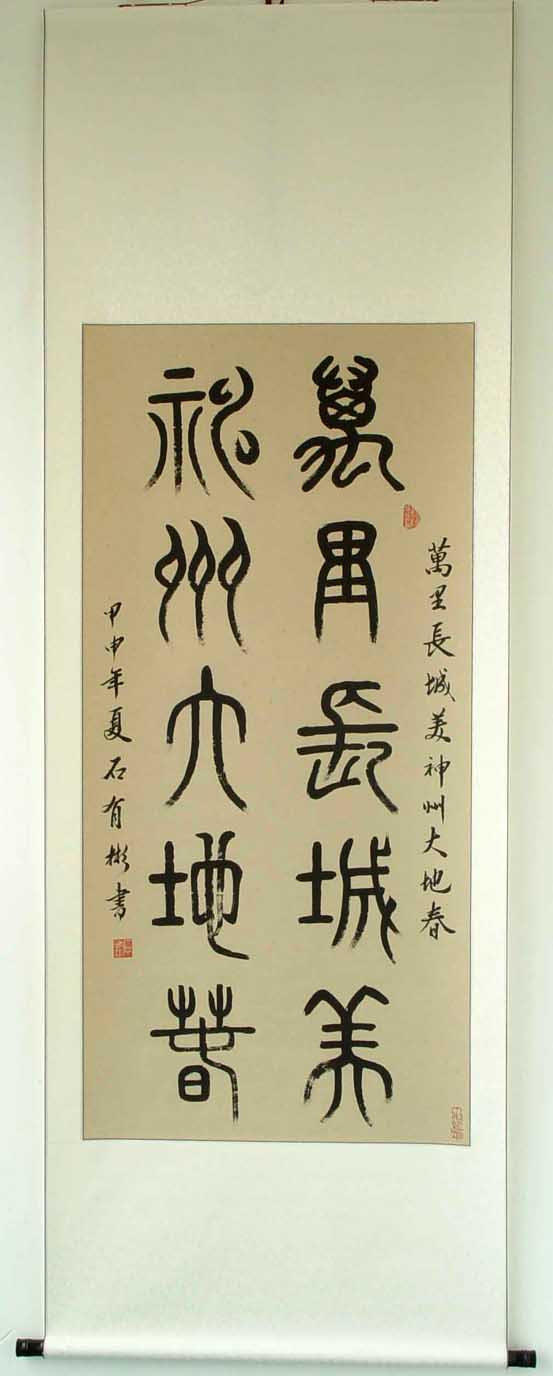 萬里長城美神州大地春
萬里長城美
神州大地春
甲申年夏石有彬書